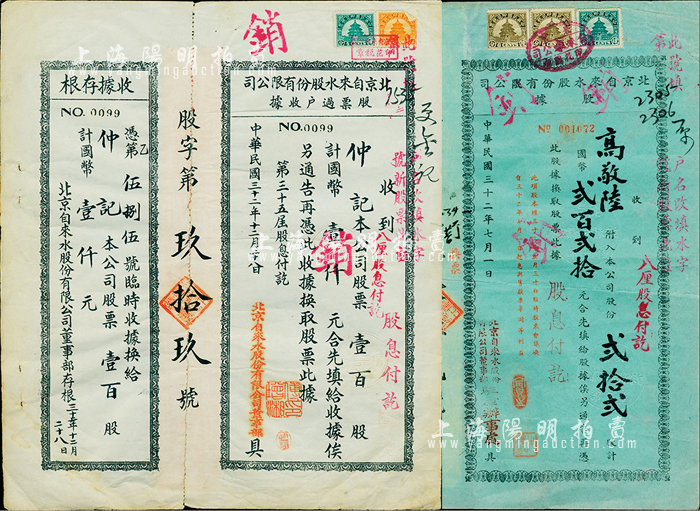 收據存根
NO.0099
憑乙第伍捌伍號臨時收據換給
仲記本公司股票壹百股
計國幣壹仟元
北京自來水股份有限公司董事部存根
三十二年十二月二十八日
股字第玖拾玖號
銷
北京自來水股份有限公司
股票過戶收據
NO.0099
收到
仲記本公司股票壹百股
計國幣壹仟元合先填給收據俟
另通告再憑此收據換取股票此據
第三十五屆股息付訖
中華民國三十二年十二月
北京自來水股份有限公司董事部具
八厘股息付訖
股息付訖
銷
北京自來水股份有限公司
股據
No 001072
收到
高敬陸附入本公司股份貳拾貳
國幣貳百貳拾元合先填給股據俟另通
此股據換取股票此據
股息付訖
中華民國三十二年七月一日
八厘股息付訖
此號填
第
2305
2306
戶名改填水字
上海陽明拍賣
www.yangmingauction.com
上海陽明拍賣
www.yangmingauction.com